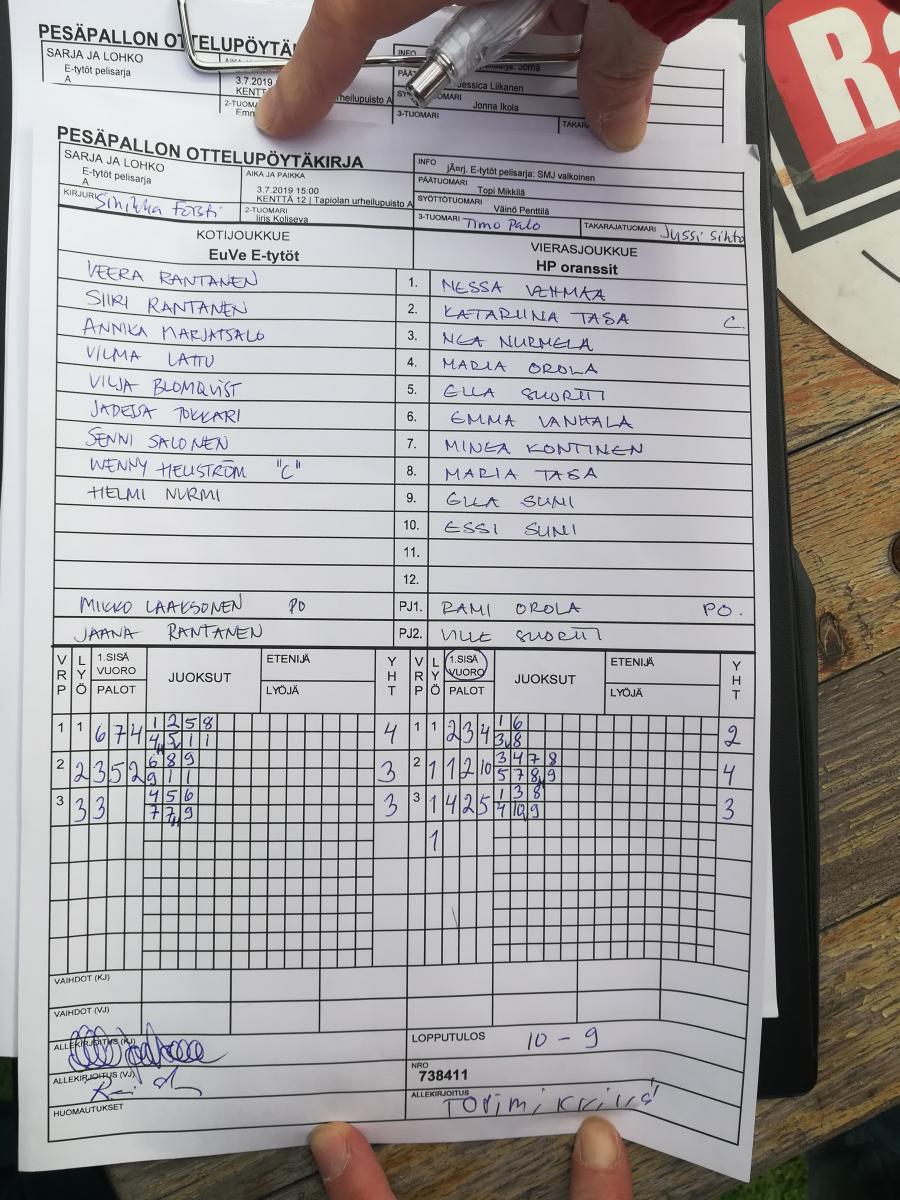 PESÄPALLON OTTELUPÖYTÄKI
SARJA JA LOHKO
E-tytöt pelisarja
A
3.7.2019
KENTT
rheilupuisto A
2-TUOMA
Emm
INFO
Jessica Liikanen
Jonna Ikola
3-TUOMARI
TAKAR
PESÄPALLON OTTELUPÖYTÄKIRJA
SARJA JA LOHKO
E-tytöt pelisarja
A
AIKA JA PAIKKA
3.7.2019 15:00
KENTTÄ 12 | Tapiolan urheilupuisto A
KIRJURI Sinikka Forsti
2-TUOMARI
Iiris Koliseva
INFO
jÄ¤rj. E-tytöt pelisarja: SMJ valkoinen
PÄÄTUOMARI
Topi Mikkilä
SYÖTTÖTUOMARI
Väinö Penttilä
3-TUOMARI Timo Palo
TAKARAJATUOMARI Jyssi Sihto
KOTIJOUKKUE
EuVe E-tytöt
VIERASJOUKKUE
HP oranssit
VEERA RANTANEN 1. NESSA VEHMAA
SIIRI RANTANEN 2. KATARIINA TASA C.
ANNIKA MARJATSALO 3. NEA NURMELA
VILMA LATTU 4. MARIA OROLA
VILJA BLOMQVIST 5. ELLA SUORTTI
JADESSA TOKKARI 6. EMMA VANHALA
SENNI SALONEN 7. MINEA KONTINEN
WENNY HELLSTRÖM "C" 8. MARIA TASA
HELMI NURMI 9. ELLA SUNI
10. ESSI SUNI
11.
12.
MIKKO LAAKSONEN PO PJ1. RAMI OROLA PO.
JAANA RANTANEN PJ2. VILLE SUORTTI
VRP LYÖ 1.SISÄ VUORO PALOT JUOKSUT ETENIJÄ LYÖJÄ YHT VRP LYÖ 1.SISÄ VUORO PALOT JUOKSUT ETENIJÄ LYÖJÄ YHT
1 1 6 7 4 1 2 5 8 4 1 1 2 3 4 1 6 2
4 5 1 1 3 8
2 2 3 5 2 6 8 9 3 2 1 1 2 10 3 4 7 8 4
9 1 1 5 7 8 9
3 3 3 4 5 6 3 3 1 4 2 5 1 3 8 3
7 7 9 4 10 9
1
VAIHDOT (KJ)
VAIHDOT (VJ)
ALLEKIRJOITUS (KJ)
LOPPUTULOS 10 - 9
ALLEKIRJOITUS (VJ)
NRO
738411
HUOMAUTUKSET
ALLEKIRJOITUS
Topi Mikkilä
Ra